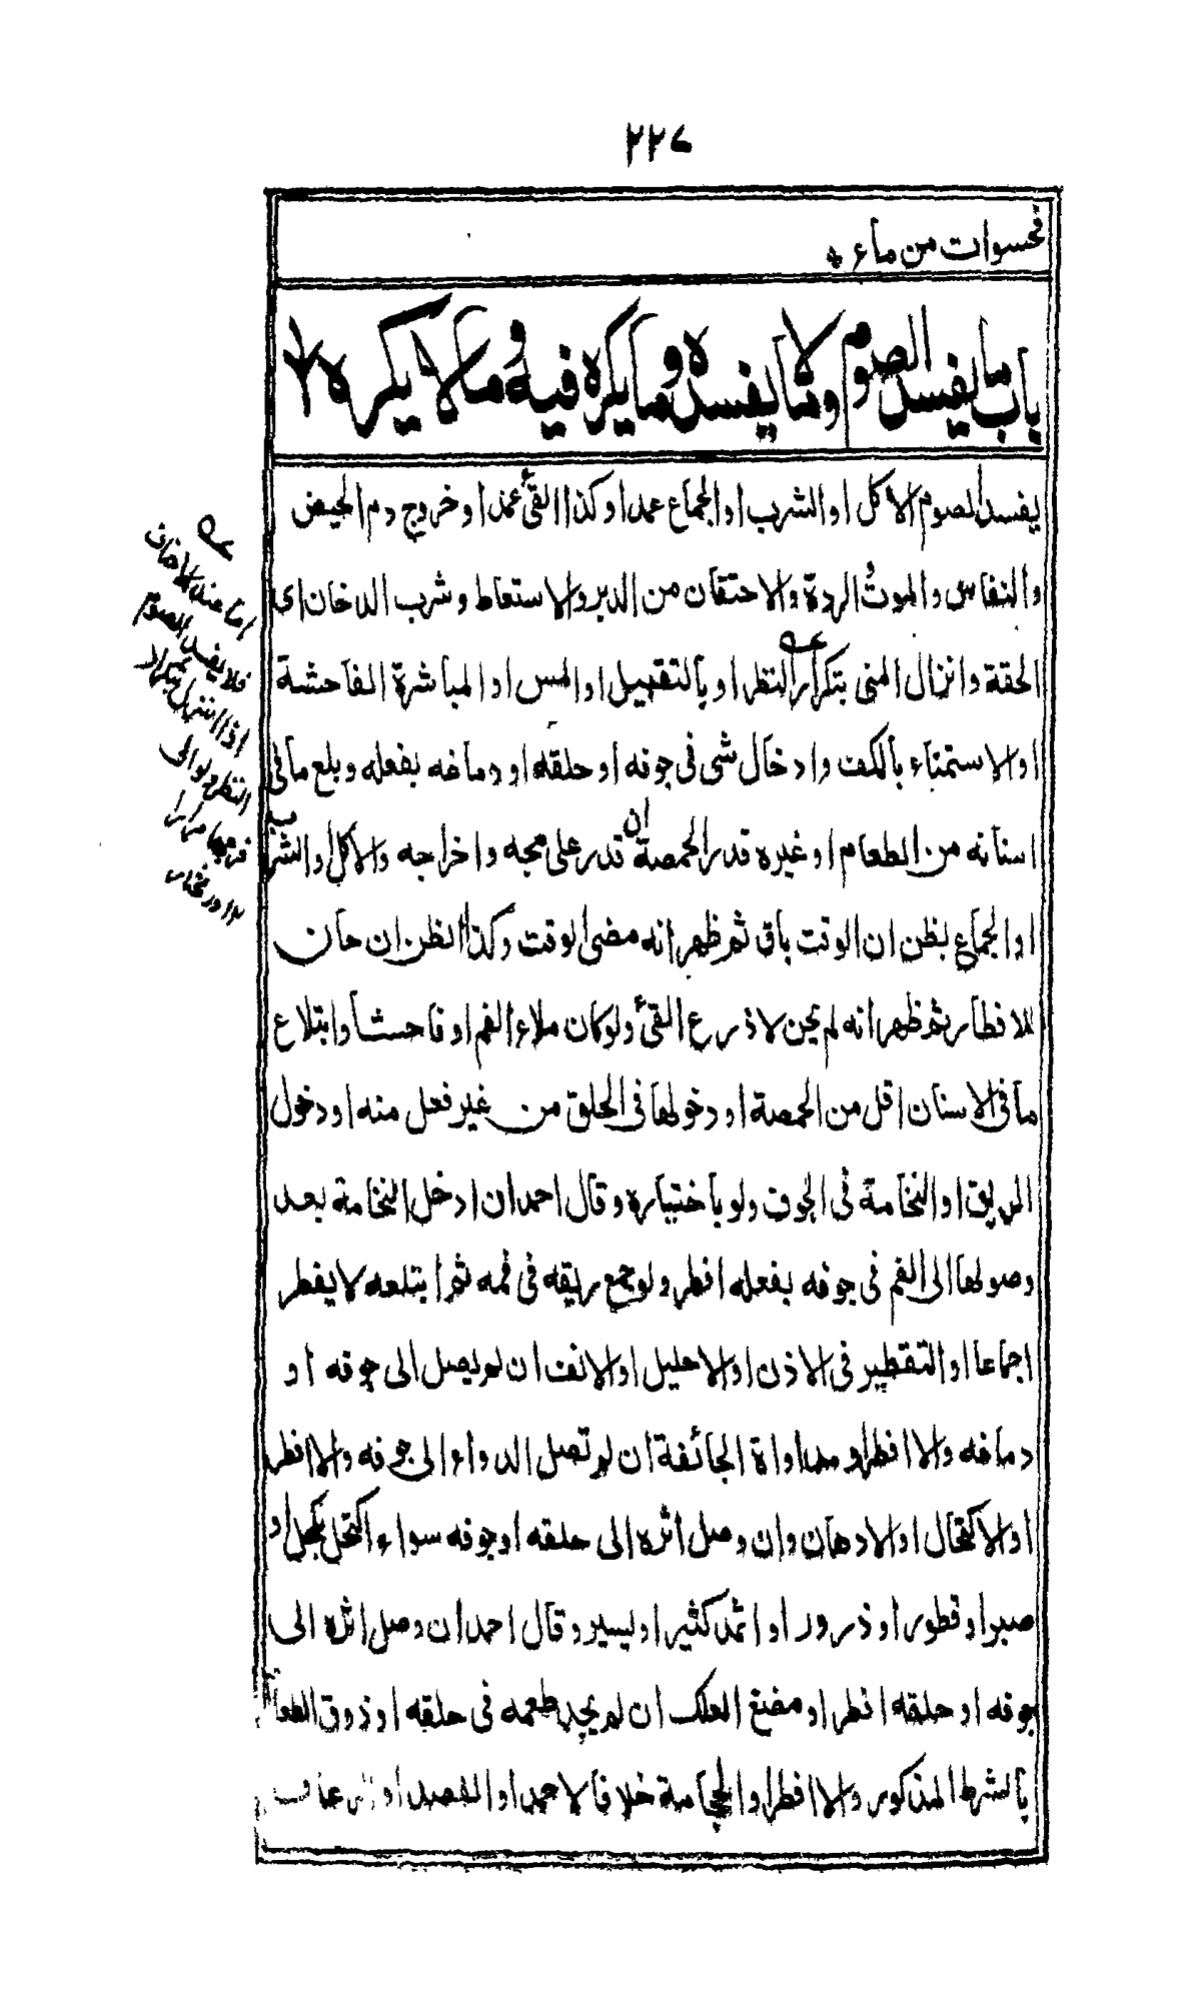 ٢٢٧
فحسوات من ماء *
باب ما يفسد الصوم وما لا يفسده وما يكره فيه وما لا يكره
يفسد الصوم الاكل او الشرب او الجماع عمدا وكذا القئ عمدا وخروج دم الحيض
والنفاس والموت الردة والاحتقان من الدبر والاستعاط وشرب الدخان اى
الحقة وانزال المنى بتكرار النظر او بالتقبيل او المس او المباشرة الفاحشة
او الاستمناء بالكف وادخال شئ فى جوفه او حلقه او دماغه بفعله وبلع ما فى
اسنانه من الطعام او غيره قدر الحمصة ان قدر على مجه واخراجه والاكل او الشرب
او الجماع بظن ان الوقت باق ثم ظهر انه مضى الوقت وكذا الظن ان حان
للافطار ثم ظهر انه لم يحن لا ذرع القئ ولو كان ملاء الفم او فاحشا وابتلاع
ما فى الاسنان اقل من الحمصة او دخولها فى الحلق من غير فعل منه او دخول
الريق او النخامة فى الجوف ولو باختياره وقال احمد ان ادخل النخامة بعد
وصولها الى الفم فى جوفه بفعله افطر ولو جمع ريقه فى فمه ثم ابتلعه لا يفطر
اجماعا او التقطير فى الاذن او الاحليل او الانف ان لم يصل الى جوفه او
دماغه والا افطر او مداواة الجائفة ان لم تصل الدواء الى جوفه والا افطر
او الاكتحال او الادهان وان وصل اثره الى حلقه او جوفه سواء اكتحل بكحل او
صبر او قطور او ذرور او اثمد كثير او يسير وقال احمد ان وصل اثره الى
جوفه او حلقه افطر او مضغ العلك ان لم يجد طعمه فى حلقه او ذوق الطعام
بالشرط المذكور والا افطر او الحجامة خلافا لاحمد او الفصد او
اما عند الاحناف
فلا يفسد الصوم
اذا انزل بتكرار
النظر ولو الى
فرجها مرارا
١٢ در مختار